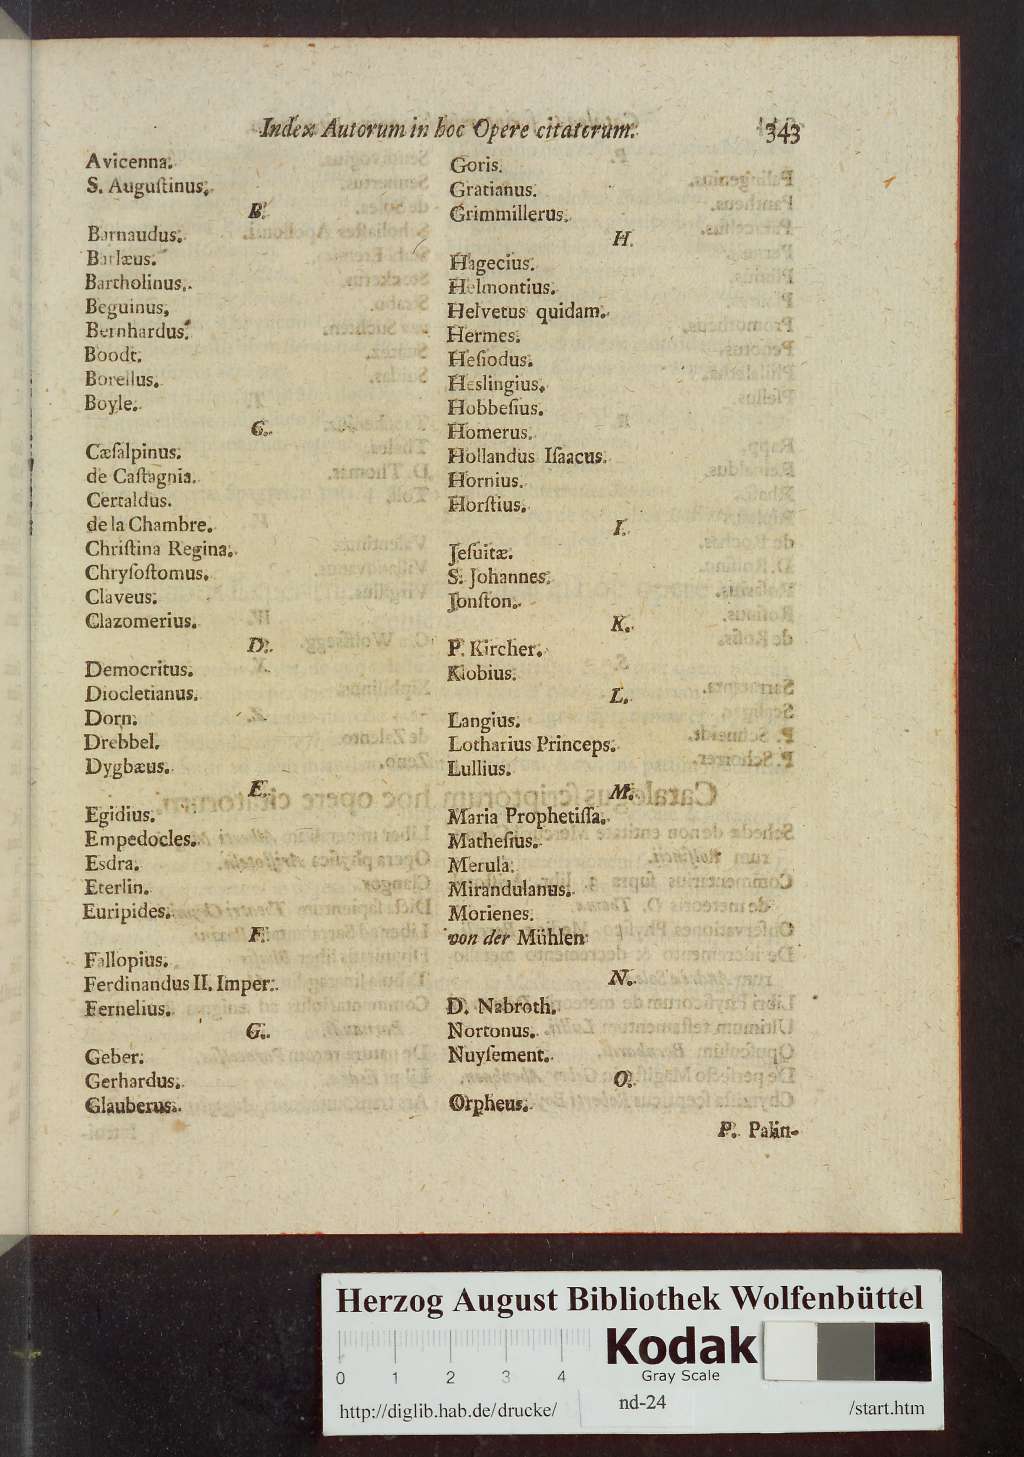 Index Autorum in hoc Opere citatorum. 343
Avicenna.
S. Auguſtinus.
B.
Barnaudus.
Barlæus.
Bartholinus.
Beguinus.
Bernhardus.
Boodt.
Borellus.
Boyle.
C.
Cæſalpinus.
de Caſtagnia.
Certaldus.
de la Chambre.
Chriſtina Regina.
Chryſoſtomus.
Claveus.
Clazomerius.
D.
Democritus.
Diocletianus.
Dorn.
Drebbel.
Dygbæus.
E.
Egidius.
Empedocles.
Esdra.
Eterlin.
Euripides.
F.
Fallopius.
Ferdinandus II. Imper.
Fernelius.
G.
Geber.
Gerhardus.
Glauberus.
Goris.
Gratianus.
Grimmillerus.
H.
Hagecius.
Helmontius.
Helvetus quidam.
Hermes.
Heſiodus.
Heslingius.
Hobbeſius.
Homerus.
Hollandus Iſaacus.
Hornius.
Horſtius.
I.
Jeſuitæ.
S. Johannes.
Jonſton.
K.
P. Kircher.
Klobius.
L.
Langius.
Lotharius Princeps.
Lullius.
M.
Maria Prophetiſſa.
Matheſius.
Merula.
Mirandulanus.
Morienes.
von der Mühlen
N.
D. Nabroth.
Nortonus.
Nuyſement.
O.
Orpheus.
P. Palin-
Herzog August Bibliothek Wolfenbüttel
Kodak
Gray Scale
0 1 2 3 4
http://diglib.hab.de/drucke/ nd-24 /start.htm